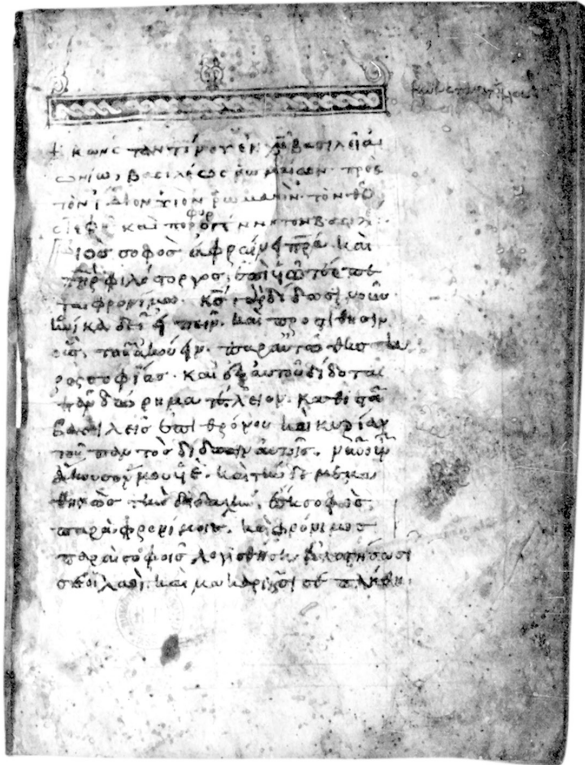 + κωνσταντίνου ἐν χω βασιλεῖ αἰ
ωνίω, βασιλέως ρωμαίων· πρὸς
τὸν ἴδιον υἱὸν ρωμανὸν· τὸν θεο
στεφῆ καὶ πορφυρογέννητον βασιλέα:
Υιὸσ σοφὸσ εὐφραίνει πρα· καὶ
πηρ φιλόστοργος, ἐπὶ υἱῶ τέρπε
ται φρονίμω· κς γὰρ δίδωσι νοῦν·
ἡνίκα δεῖ λέγειν· καὶ προστίθησιν
οὖς, τοῦ ἀκούειν· παραὐτῶ θησαυ
ρὸς σοφίας· καὶ ἐξ αὐτοῦ δίδοται
πᾶν δώρημα τέλειον· καθιστᾶ
βασιλεῖσ ἐπὶ θρόνου καὶ κυρίαν
τοῦ παντὸς δίδωσιν αὐτοῖς. νῦν οὖν
ἄκουσόν μου υἱέ· καὶ τήνδε μεμα
θηκὼς τὴν διδαχὴν, ἔση σοφὸς
παρὰ φρονίμοις, καὶ φρόνιμος
παρὰ σοφοῖσ λογισθήση· εὐλογήσουσί
σε οἱ λαοὶ. καὶ μακαριοῦσί σε πλήθη